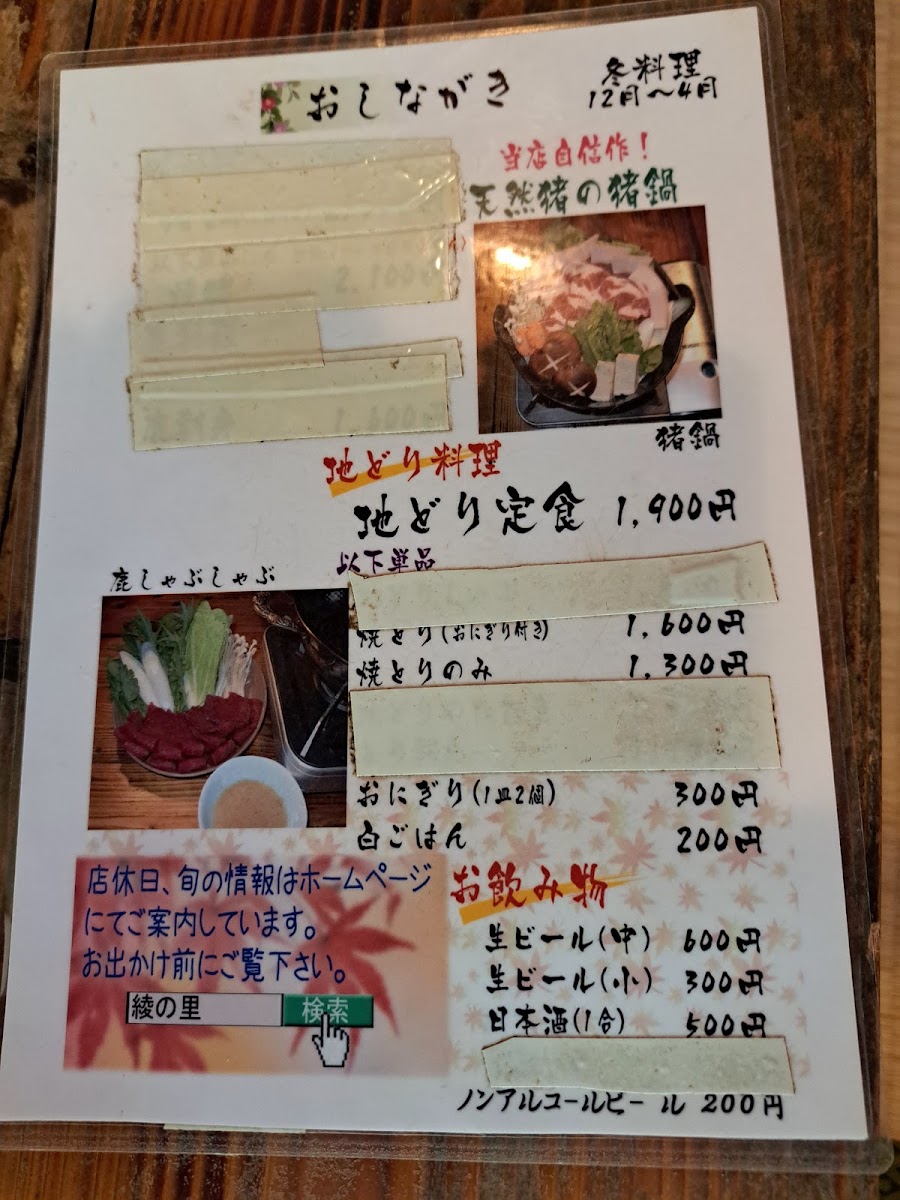 おしながき
冬料理
12月～4月
当店自信作！
天然猪の猪鍋
猪鍋
地どり料理
地どり定食 1,900円
以下単品
鹿しゃぶしゃぶ
焼とり(おにぎり付き) 1,600円
焼とりのみ 1,300円
おにぎり(1皿2個) 300円
白ごはん 200円
店休日、旬の情報はホームページ
にてご案内しています。
お出かけ前にご覧下さい。
綾の里 検索
お飲み物
生ビール(中) 600円
生ビール(小) 300円
日本酒(1合) 500円
ノンアルコールビール 200円